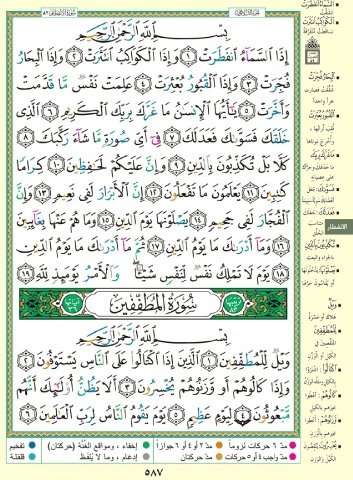 بِسْمِ اللَّهِ الرَّحْمَٰنِ الرَّحِيمِ
إِذَا السَّمَاءُ انفَطَرَتْ ١ وَإِذَا الْكَوَاكِبُ انتَثَرَتْ ٢ وَإِذَا الْبِحَارُ
فُجِّرَتْ ٣ وَإِذَا الْقُبُورُ بُعْثِرَتْ ٤ عَلِمَتْ نَفْسٌ مَّا قَدَّمَتْ
وَأَخَّرَتْ ٥ يَا أَيُّهَا الْإِنسَانُ مَا غَرَّكَ بِرَبِّكَ الْكَرِيمِ ٦ الَّذِي
خَلَقَكَ فَسَوَّاكَ فَعَدَلَكَ ٧ فِي أَيِّ صُورَةٍ مَّا شَاءَ رَكَّبَكَ ٨
كَلَّا بَلْ تُكَذِّبُونَ بِالدِّينِ ٩ وَإِنَّ عَلَيْكُمْ لَحَافِظِينَ ١٠ كِرَامًا
كَاتِبِينَ ١١ يَعْلَمُونَ مَا تَفْعَلُونَ ١٢ إِنَّ الْأَبْرَارَ لَفِي نَعِيمٍ ١٣ وَإِنَّ
الْفُجَّارَ لَفِي جَحِيمٍ ١٤ يَصْلَوْنَهَا يَوْمَ الدِّينِ ١٥ وَمَا هُمْ عَنْهَا بِغَائِبِينَ
١٦ وَمَا أَدْرَاكَ مَا يَوْمُ الدِّينِ ١٧ ثُمَّ مَا أَدْرَاكَ مَا يَوْمُ الدِّينِ
١٨ يَوْمَ لَا تَمْلِكُ نَفْسٌ لِّنَفْسٍ شَيْئًا وَالْأَمْرُ يَوْمَئِذٍ لِّلَّهِ ١٩
سُورَةُ الْمُطَفِّفِينَ
بِسْمِ اللَّهِ الرَّحْمَٰنِ الرَّحِيمِ
وَيْلٌ لِّلْمُطَفِّفِينَ ١ الَّذِينَ إِذَا اكْتَالُوا عَلَى النَّاسِ يَسْتَوْفُونَ ٢
وَإِذَا كَالُوهُمْ أَو وَّزَنُوهُمْ يُخْسِرُونَ ٣ أَلَا يَظُنُّ أُولَٰئِكَ أَنَّهُم
مَّبْعُوثُونَ ٤ لِيَوْمٍ عَظِيمٍ ٥ يَوْمَ يَقُومُ النَّاسُ لِرَبِّ الْعَالَمِينَ ٦
الانفطار
مدّ ٦ حركات لزوماً مدّ ٢ أو ٤ أو ٦ جوازاً إخفاء، ومواقع الغُنَّة (حركتان) تفخيم
مدّ واجب ٤ أو ٥ حركات مدّ حركتان إدغام، وما لا يُلفَظ قلقلة
٥٨٧